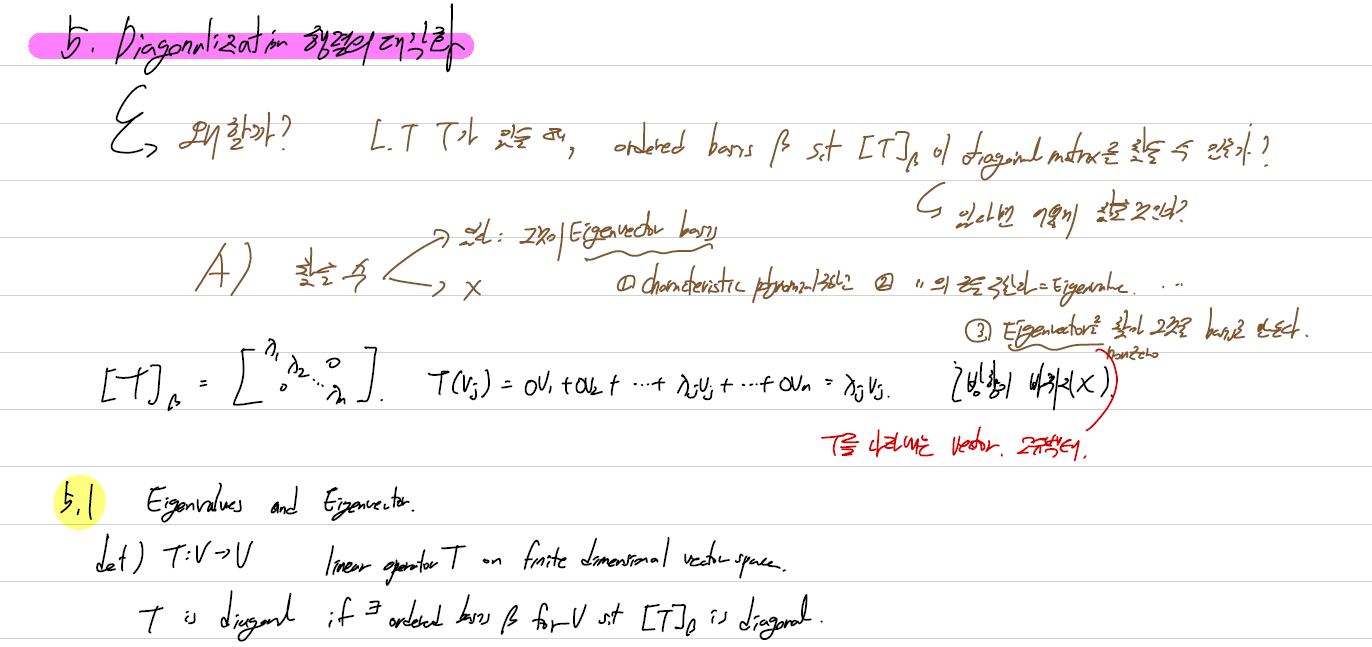 5. Diagonalization 행렬의 대각화
왜 할까? L.T T가 있을 때, ordered basis β s.t [T]_β 이 diagonal matrix를 찾을 수 있을까?
있다면 어떻게 찾을 것인가?
A) 찾을 수 있다: 그것이 Eigenvector basis
x ① characteristic polynomial 구하고 ② " 의 근을 구한다 = Eigenvalue. ...
③ Eigenvector를 찾아 그것을 basis로 만든다.
nonzero
[T]_β = [λ₁ λ₂ ... λn 0 0]. T(vj) = 0v₁ + 0v₂ + ... + λjvj + ... + 0vn = λjvj. (방향이 바뀌지 X)
T를 나타내는 vector. 고유벡터.
5.1 Eigenvalues and Eigenvector.
def) T: V → V linear operator T on finite dimensional vector space.
T is diagonal if ∃ ordered basis β for V s.t [T]_β is diagonal.